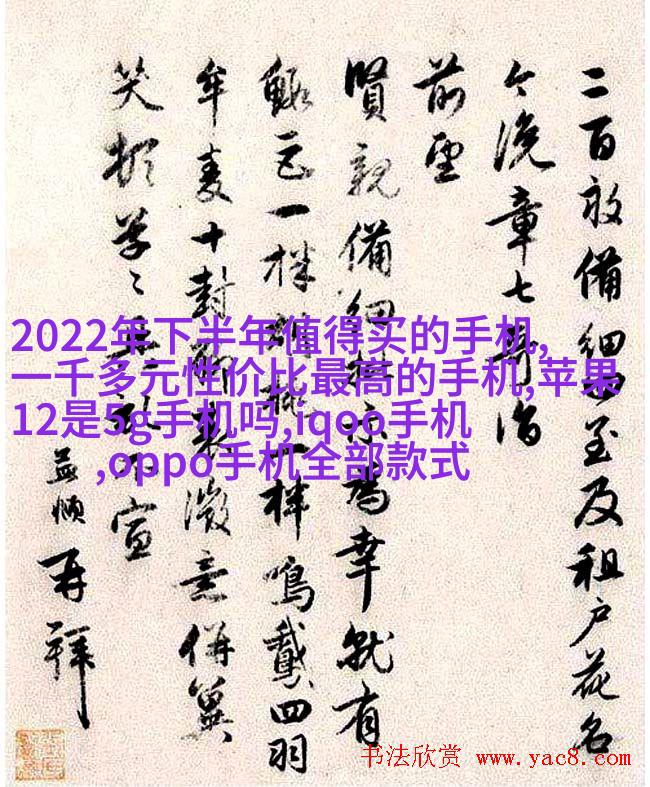 二百畝備細至及租户花名
今浼章七舅詣
前
賢親備細示爲幸就有
一柈一柈鳴鵞四羽
牟麦十封聊表微意併冀
笑草〻不宣
再拜
2022年下半年值得买的手机,
一千多元性价比最高的手机,苹果
12是5g手机吗,iqoo手机
,oppo手机全部款式
书法欣赏 www.yac8.com